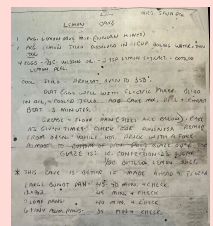 MRS. SAVAGE
LEMON CAKE
1 PKG. LEMON CAKE MIX (DUNCAN HINES)
1 PKG. LEMON JELLO DISSOLVED IN 1 CUP BOILING WATER, THEN
COOL
4 EGGS - 3/4 C. WESSON OIL - 2 TSP LEMON EXTRACT -
LEMON PEEL.
COOL JELLO - PREHEAT OVEN TO 350°.
BEAT EGGS WELL WITH ELECTRIC MIXER. BLEND
IN OIL, COOLED JELLO. ADD CAKE MIX, PEEL & EXTRACT
BEAT 5 MINUTES.
GREASE & FLOUR PANS (SEE BELOW). BAKE
AS GIVEN TIMES. CHECK FOR DONENESS. REMOVE
FROM OVEN. WHILE HOT, PRICK WITH A FORK
ALMOST TO BOTTOM OF PAN. GLAZE OVER
GLAZE IS: 2 C. CONFECTIONER'S SUGAR
BOTTLED LEMON JUICE.
* THIS CAKE IS BETTER IF MADE AHEAD &
LARGE BUNDT PAN - 45-50 MINS & CHECK
13x9x2 45 MINS & CHECK
2 LOAF PANS 40 MIN. & CHECK
PANS. 35 MIN. & CHECK.